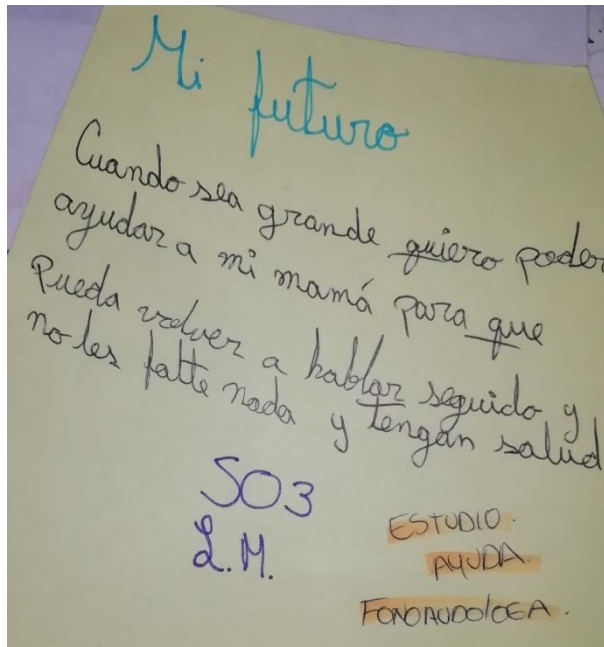 Mi futuro
Cuando sea grande quiero poder
ayudar a mi mamá para que
Pueda volver a hablar seguido y
no les falte nada y tengan salud
SO3
L.M.
ESTUDIO.
AYUDA.
FONOAUDOlOGA.